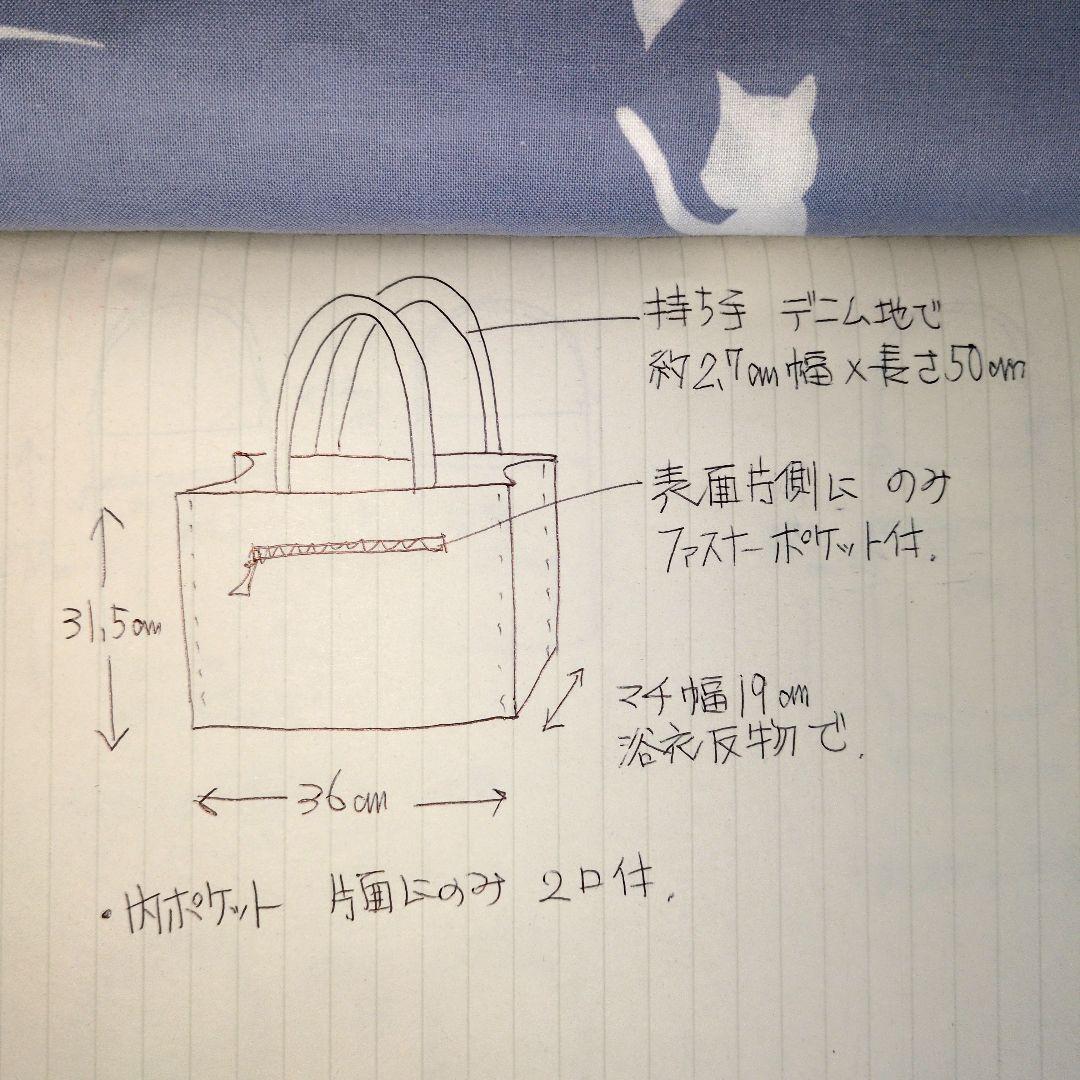 持ち手 デニム地で
約2.7cm幅×長さ50cm
表面片側に のみ
ファスナーポケット付.
31.5cm
マチ幅19cm
浴衣反物で.
36cm
・内ポケット 片面にのみ 2口付.